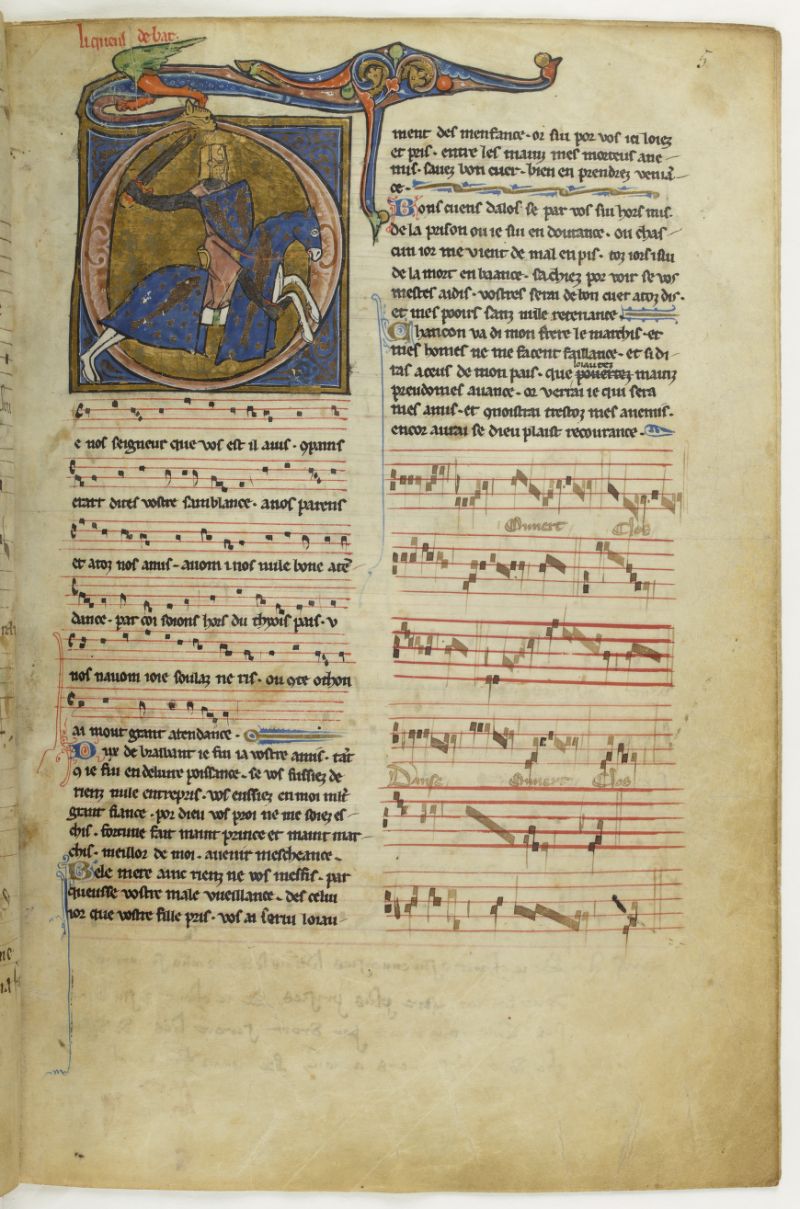 li quens de bar.
5
e nos seigneur que vos est il auis. 9panis
erart dites vostre samblance. a nos parens
et a toz nos amis. auom i nos nule bone ate
dance. par coi soions hors du thyois pais. v
nos nauom ioie soulaz ne ris. ou 9te othon
ai mout grant atendance.
Dux de braibant ie fui ia vostre amis. tāt
9 ie fui en deliure poissance. se vos fussiez de
rienz nule entrepris. vos eussiez en moi mlt
grant fiance. por dieu vos proi ne me soiez es
chis. fortune fait maint prince et maint mar
chis. meillor de moi. auenir mescheance.
Bele mere ainc rienz ne vos meffis. par
queusse vostre male vueillance. des celui
ior que vostre fille pris. vos ai serui loiau
ment des menfance. or sui por vos ici loiez
et pris. entre les mainz mes morteus ane
mis. sauez bon cuer. bien en prendrez veniā
ce.
Bons cuens dalos se par vos sui hors mis.
de la prison ou ie sui en doutance. ou chas
cun ior me vient de mal en pis. toz iors i sui
de la mort en baance. sachiez por voir se vos
mestes aidis. vostres serai de bon cuer a toz dis.
et mes pooirs sanz nule retenance.
Chancon va di mon frere le marchis. et
mes homes ne me facent faillance. et si di
ras a ceus de mon pais. que loiautez pouertez mainz
preudomes auance. or verrai ie qui sera
mes amis. et quoistrai trestoz mes anemis.
encor aurai se dieu plaist recourance.
Ouuert Clos
Danse Ouuert Clos